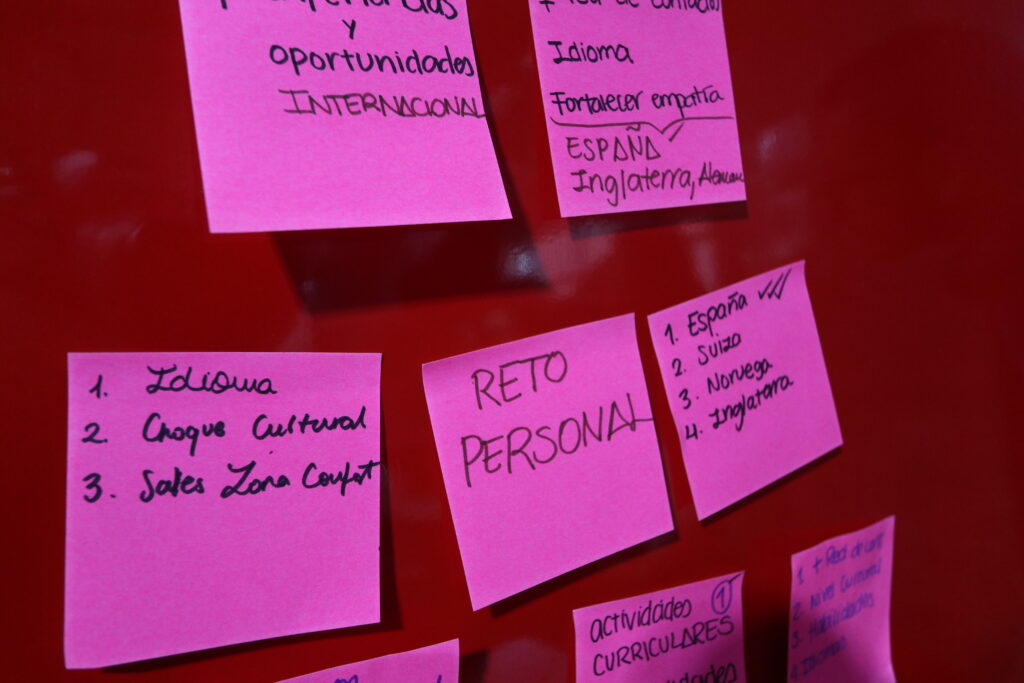 y
oportunidades
INTERNACIONAL
+ red de contactos
Idioma
Fortalecer empatía
ESPAÑA
Inglaterra,
1. Idioma
2. Choque Cultural
3. Sales Zona Confort
RETO
PERSONAL
1. España
2. Suiza
3. Noruega
4. Inglaterra
actividades 1
CURRICULARES
1 + Red de cont
2 Nivel Cultural
3. Habilidades
4 Idiomas